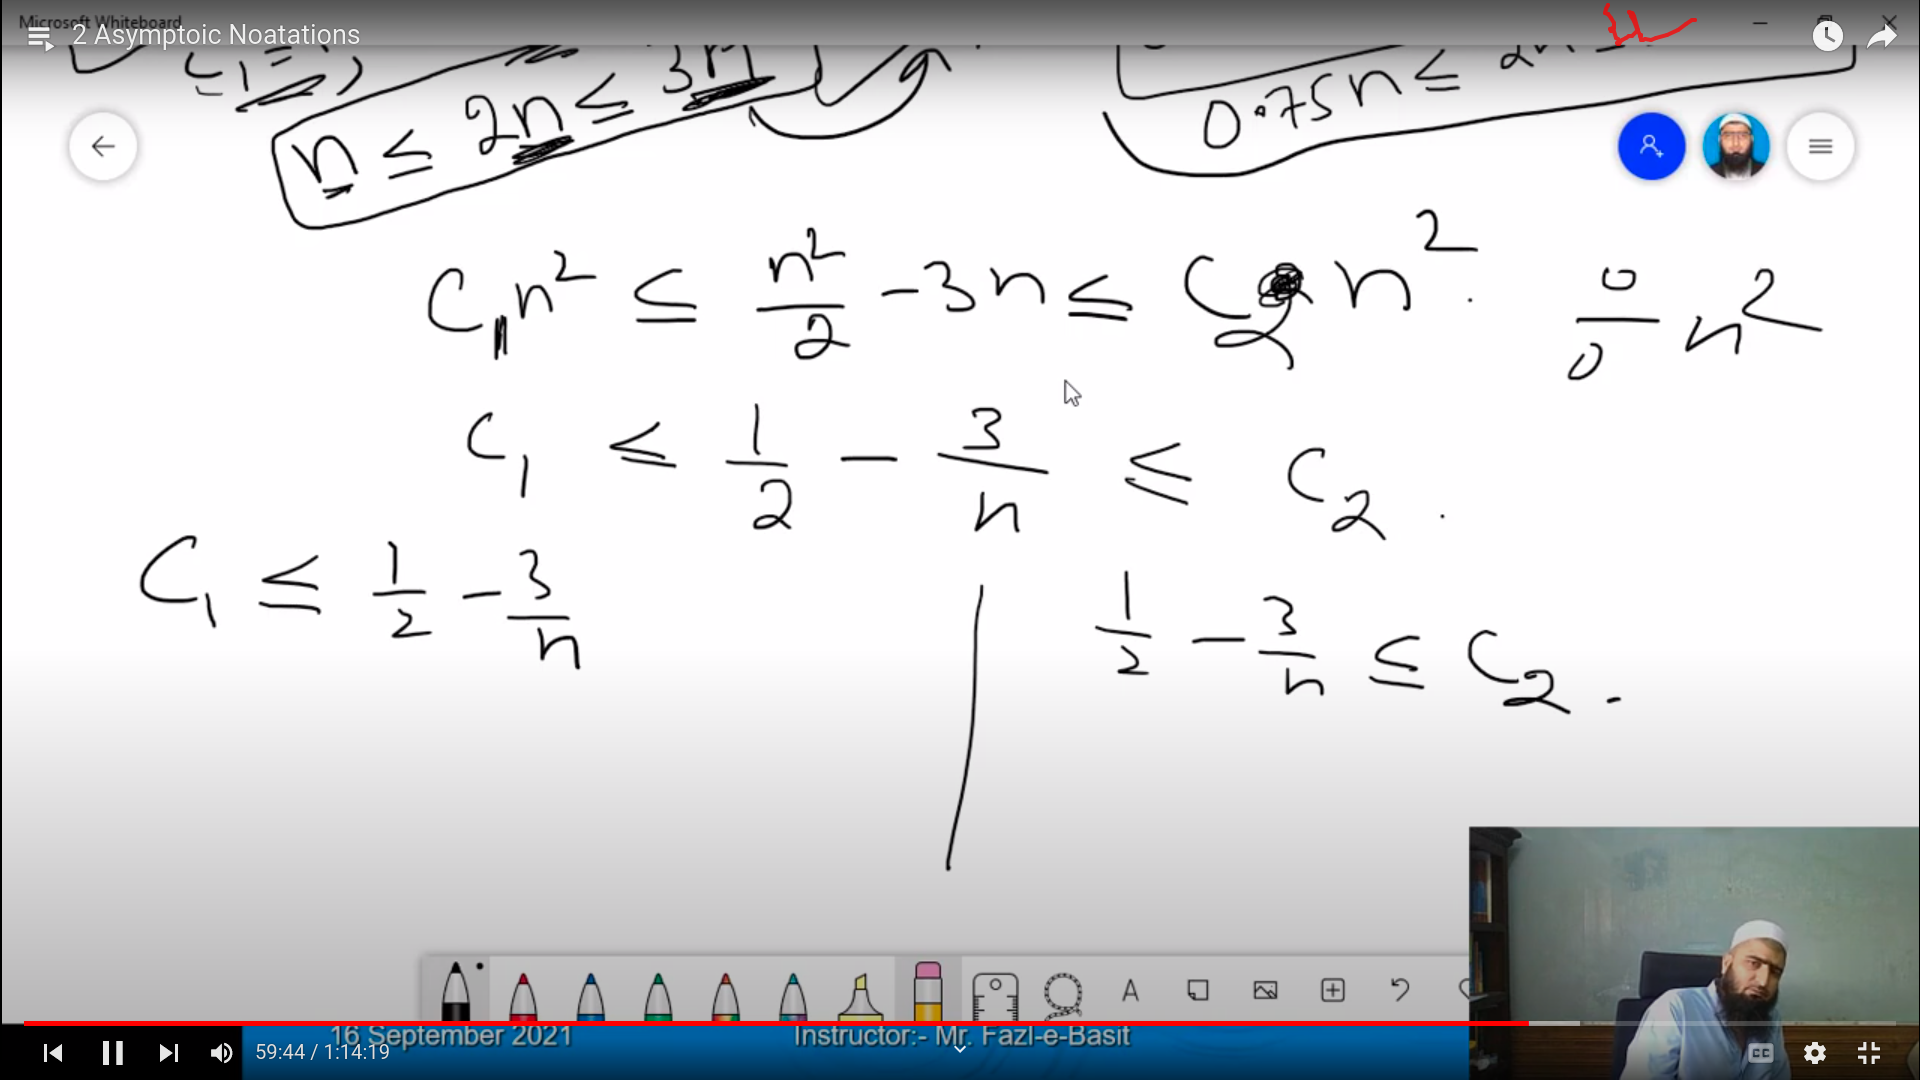 Microsoft Whiteboard
2 Asymptoic Noatations
n ≤ 2n ≤ 3n
0.75n ≤ 2n
C₁n² ≤ n²/2 - 3n ≤ C₂ n² .
0/0 n²
C₁ ≤ 1/2 - 3/n ≤ C₂ .
C₁ ≤ 1/2 - 3/n
1/2 - 3/n ≤ C₂ .
A
16 September 2021
Instructor:- Mr. Fazl-e-Basit
59:44 / 1:14:19
CC